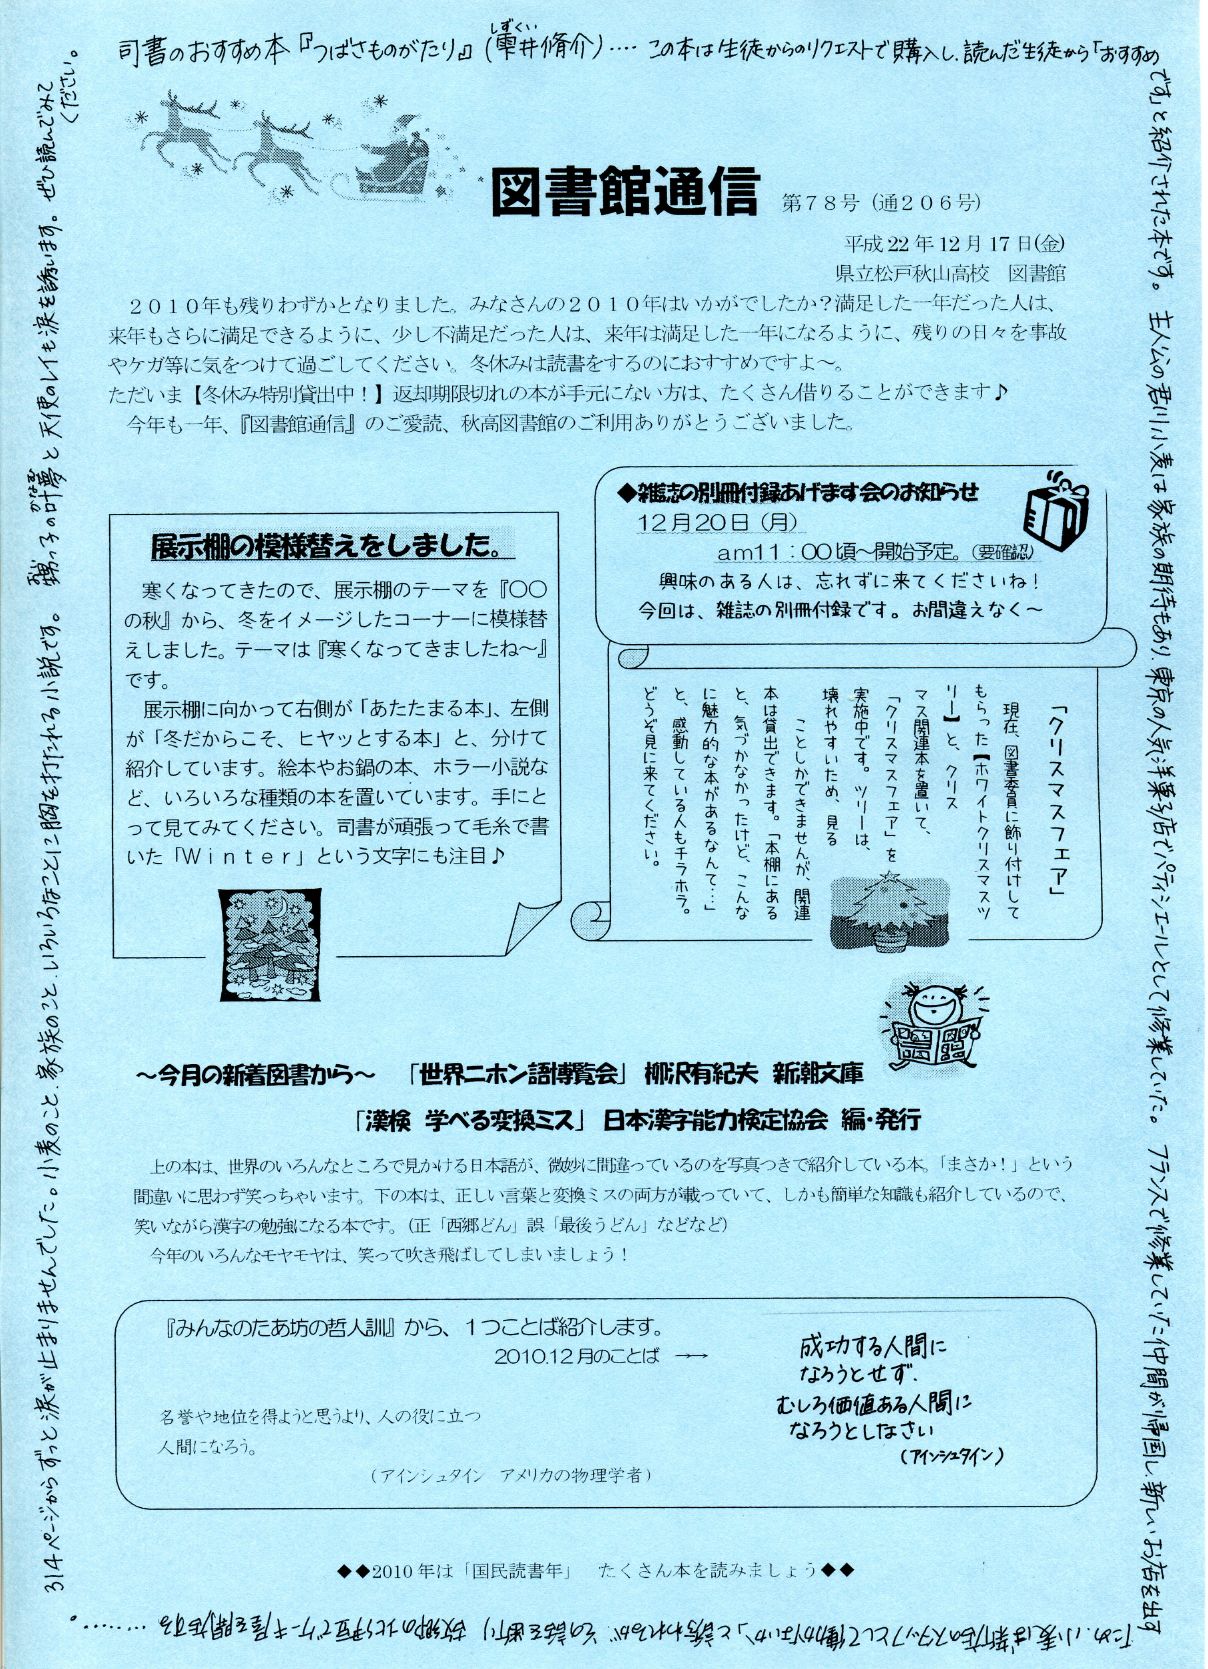 司書のおすすめ本『つばさものがたり』(雫井脩介)‥‥ この本は生徒からのリクエストで購入し、読んだ生徒から「おすすめ
しずくい
です」と紹介された本です。 主人公の君川小麦は家族の期待もあり、東京の人気洋菓子店でパティシエールとして修業していた。 フランスで修業していた仲間が帰国し、新しいお店を出す
ため、小麦は「新店のスタッフとして働かないか」と誘われるが、その話を断り、故郷の北伊豆でケーキ屋を開店する‥‥‥‥。
314ページからずっと涙が止まりませんでした。小麦のこと、家族のこと、いろいろなことに胸を打たれる小説です。 甥っ子の叶夢と天使のレイも涙を誘います。 ぜひ読んでみて
ください。
図書館通信 第78号(通206号)
平成22年12月17日(金)
県立松戸秋山高校 図書館
2010年も残りわずかとなりました。みなさんの2010年はいかがでしたか?満足した一年だった人は、
来年もさらに満足できるように、少し不満足だった人は、来年は満足した一年になるように、残りの日々を事故
やケガ等に気をつけて過ごしてください。冬休みは読書をするのにおすすめですよ~。
ただいま【冬休み特別貸出中!】返却期限切れの本が手元にない方は、たくさん借りることができます♪
今年も一年、『図書館通信』のご愛読、秋高図書館のご利用ありがとうございました。
展示棚の模様替えをしました。
寒くなってきたので、展示棚のテーマを『〇〇
の秋』から、冬をイメージしたコーナーに模様替
えしました。テーマは『寒くなってきましたね~』
です。
展示棚に向かって右側が「あたたまる本」、左側
が「冬だからこそ、ヒヤッとする本」と、分けて
紹介しています。絵本やお鍋の本、ホラー小説な
ど、いろいろな種類の本を置いています。手にと
って見てみてください。司書が頑張って毛糸で書
いた「Winter」という文字にも注目♪
◆雑誌の別冊付録あげます会のお知らせ
12月20日(月)
am11:00頃~開始予定。(要確認)
興味のある人は、忘れずに来てくださいね!
今回は、雑誌の別冊付録です。お間違えなく~
「クリスマスフェア」
現在、図書委員に飾り付けして
もらった【ホワイトクリスマスツ
リー】と、クリス
マス関連本を置いて、
「クリスマスフェア」を
実施中です。ツリーは、
壊れやすいため、見る
ことしかできませんが、関連
本は貸出できます。「本棚にある
と、気づかなかったけど、こんな
に魅力的な本があるなんて…」
と、感動している人もチラホラ。
どうぞ見に来てください。
~今月の新着図書から~ 「世界ニホン語博覧会」 柳沢有紀夫 新潮文庫
「漢検 学べる変換ミス」 日本漢字能力検定協会 編・発行
上の本は、世界のいろんなところで見かける日本語が、微妙に間違っているのを写真つきで紹介している本。「まさか!」という
間違いに思わず笑っちゃいます。下の本は、正しい言葉と変換ミスの両方が載っていて、しかも簡単な知識も紹介しているので、
笑いながら漢字の勉強になる本です。(正「西郷どん」誤「最後うどん」などなど)
今年のいろんなモヤモヤは、笑って吹き飛ばしてしまいましょう!
『みんなのたあ坊の哲人訓』から、1つことば紹介します。
2010.12月のことば →→
名誉や地位を得ようと思うより、人の役に立つ
人間になろう。
(アインシュタイン アメリカの物理学者)
成功する人間に
なろうとせず、
むしろ価値ある人間に
なろうとしなさい
(アインシュタイン)
◆◆2010年は「国民読書年」 たくさん本を読みましょう◆◆